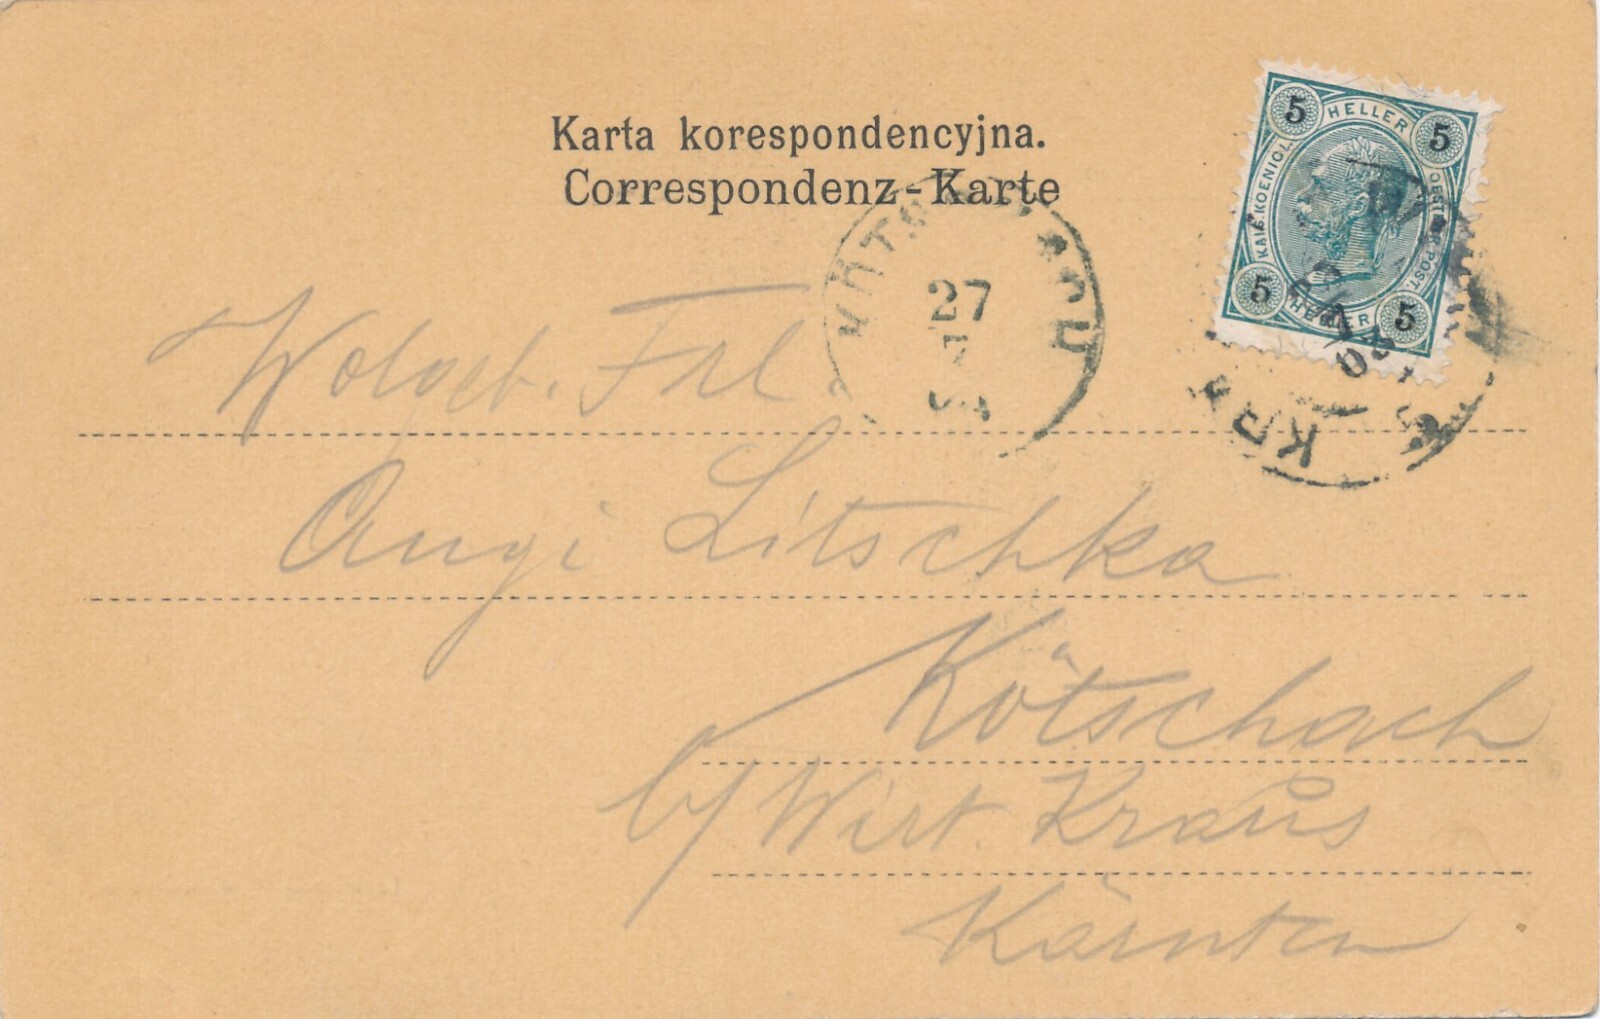 Karta korespondencyjna.
Correspondenz-Karte
5 HELLER 5
KAIS. KOENIGL. OESTERR. POST.
5 HELLER 5
27
Wolgeb. Frl
Angi Litschka
Kötschach
b/ Wirt Kraus
Kärnten